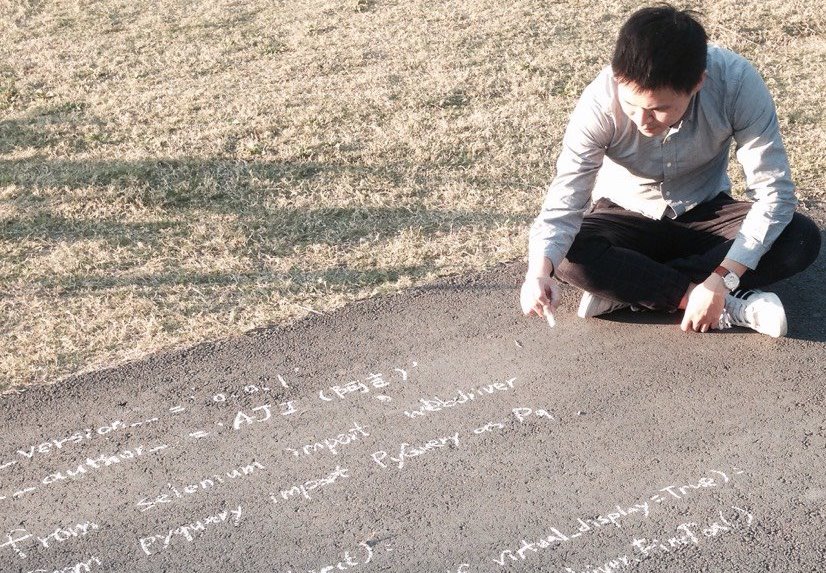 __version__ = '0.0.1
__author__ = 'AJI (阿吉)'
from selenium import webdriver
from pyquery import PyQuery as Pq
ject):
virtual_display=True):
driver.Firefox()